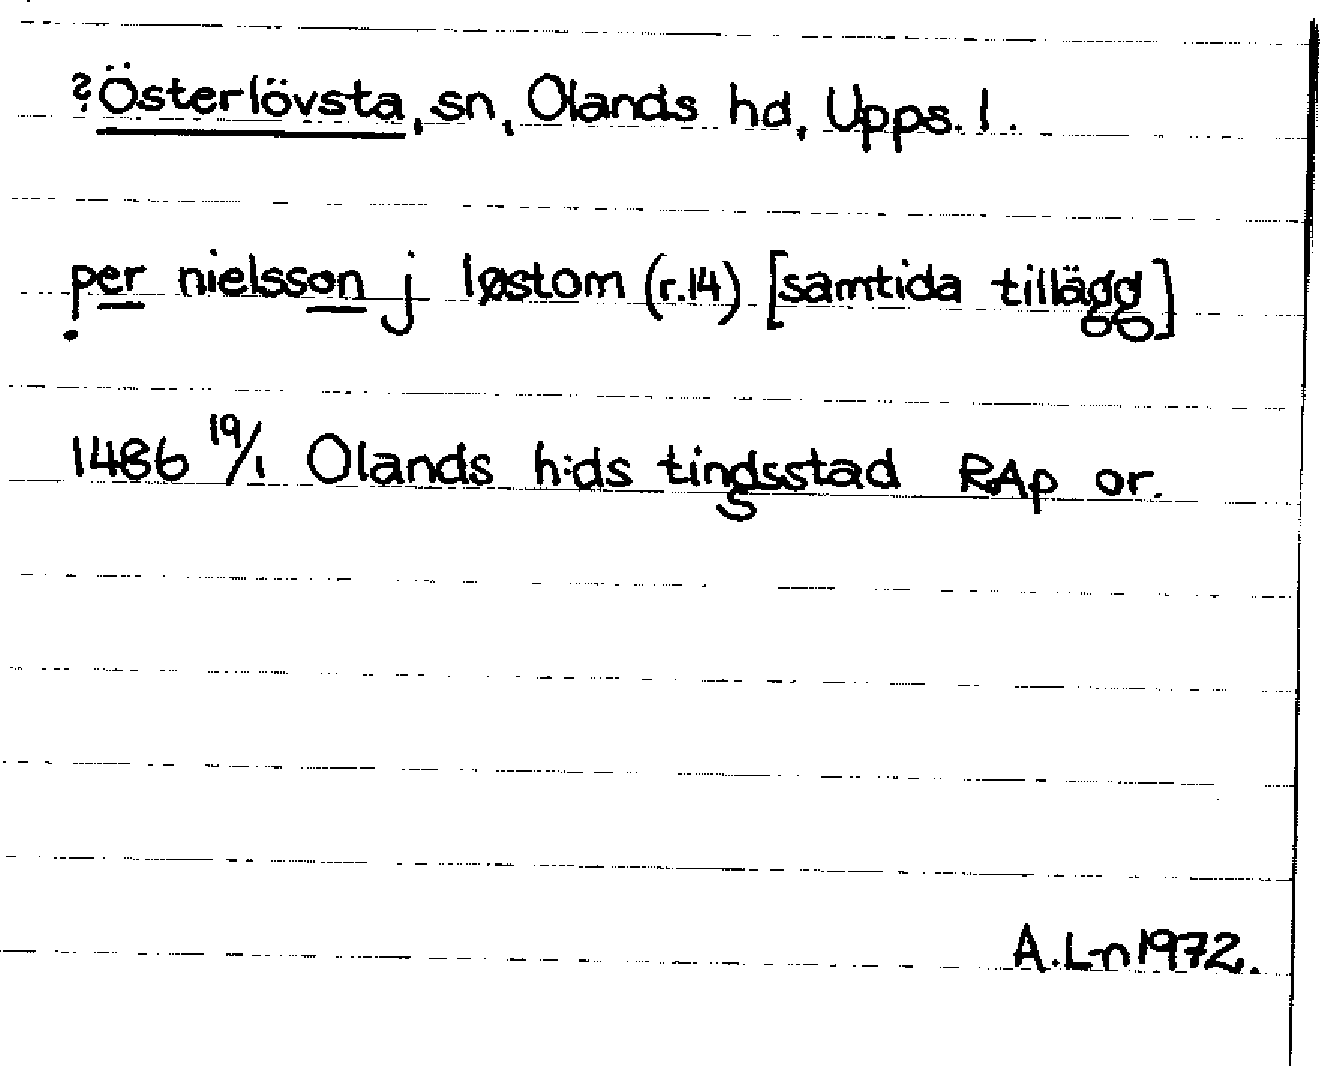 ?Österlövsta, sn, Olands hd, Upps. l.
per nielsson j løstom (r.14) [samtida tillägg]
1486 19/1 Olands h:ds tingsstad RAp or.
A.L-n 1972.